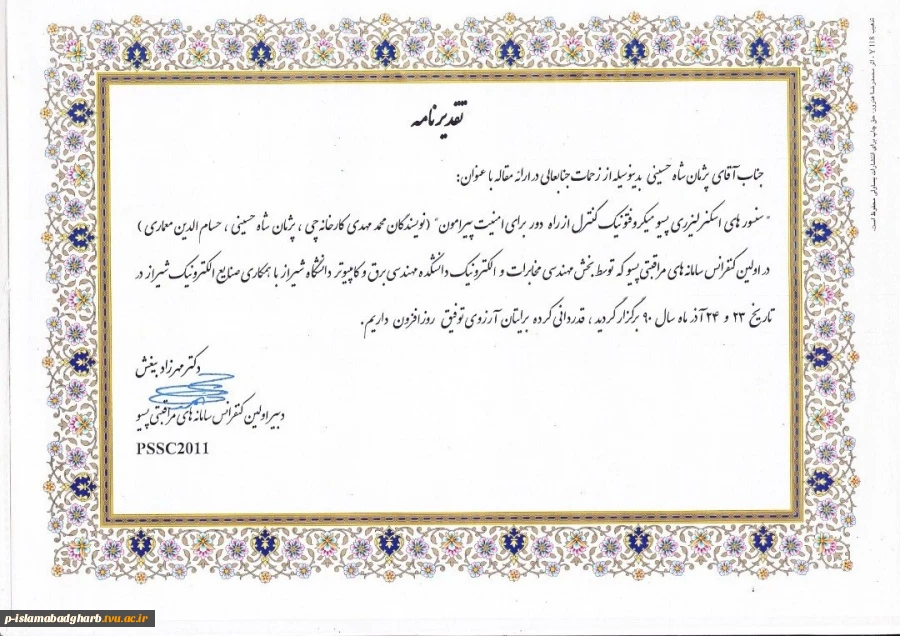 تقدیرنامه
جناب آقای پژمان شاه حسینی بدینوسیله از زحمات جنابعالی در ارائه مقاله با عنوان:
" سنسور های اسکنر لیزری پسیو میکروفتونیک کنترل از راه دور برای امنیت پیرامون" (نویسندگان محمد مهدی کارخانه چی ، پژمان شاه حسینی ، حسام الدین معماری )
در اولین کنفرانس سامانه های مراقبتی پسیو که توسط بخش مهندسی مخابرات و الکترونیک دانشکده مهندسی برق و کامپیوتر دانشگاه شیراز با همکاری صنایع الکترونیک شیراز در
تاریخ ۲۳ و ۲۴ آذر ماه سال ۹۰ برگزار گردید ، قدردانی کرده برایتان آرزوی توفیق روزافزون داریم.
دکتر مهرزاد بیغش
دبیر اولین کنفرانس سامانه های مراقبتی پسیو
PSSC2011
p-islamabadgharb.tvu.ac.ir